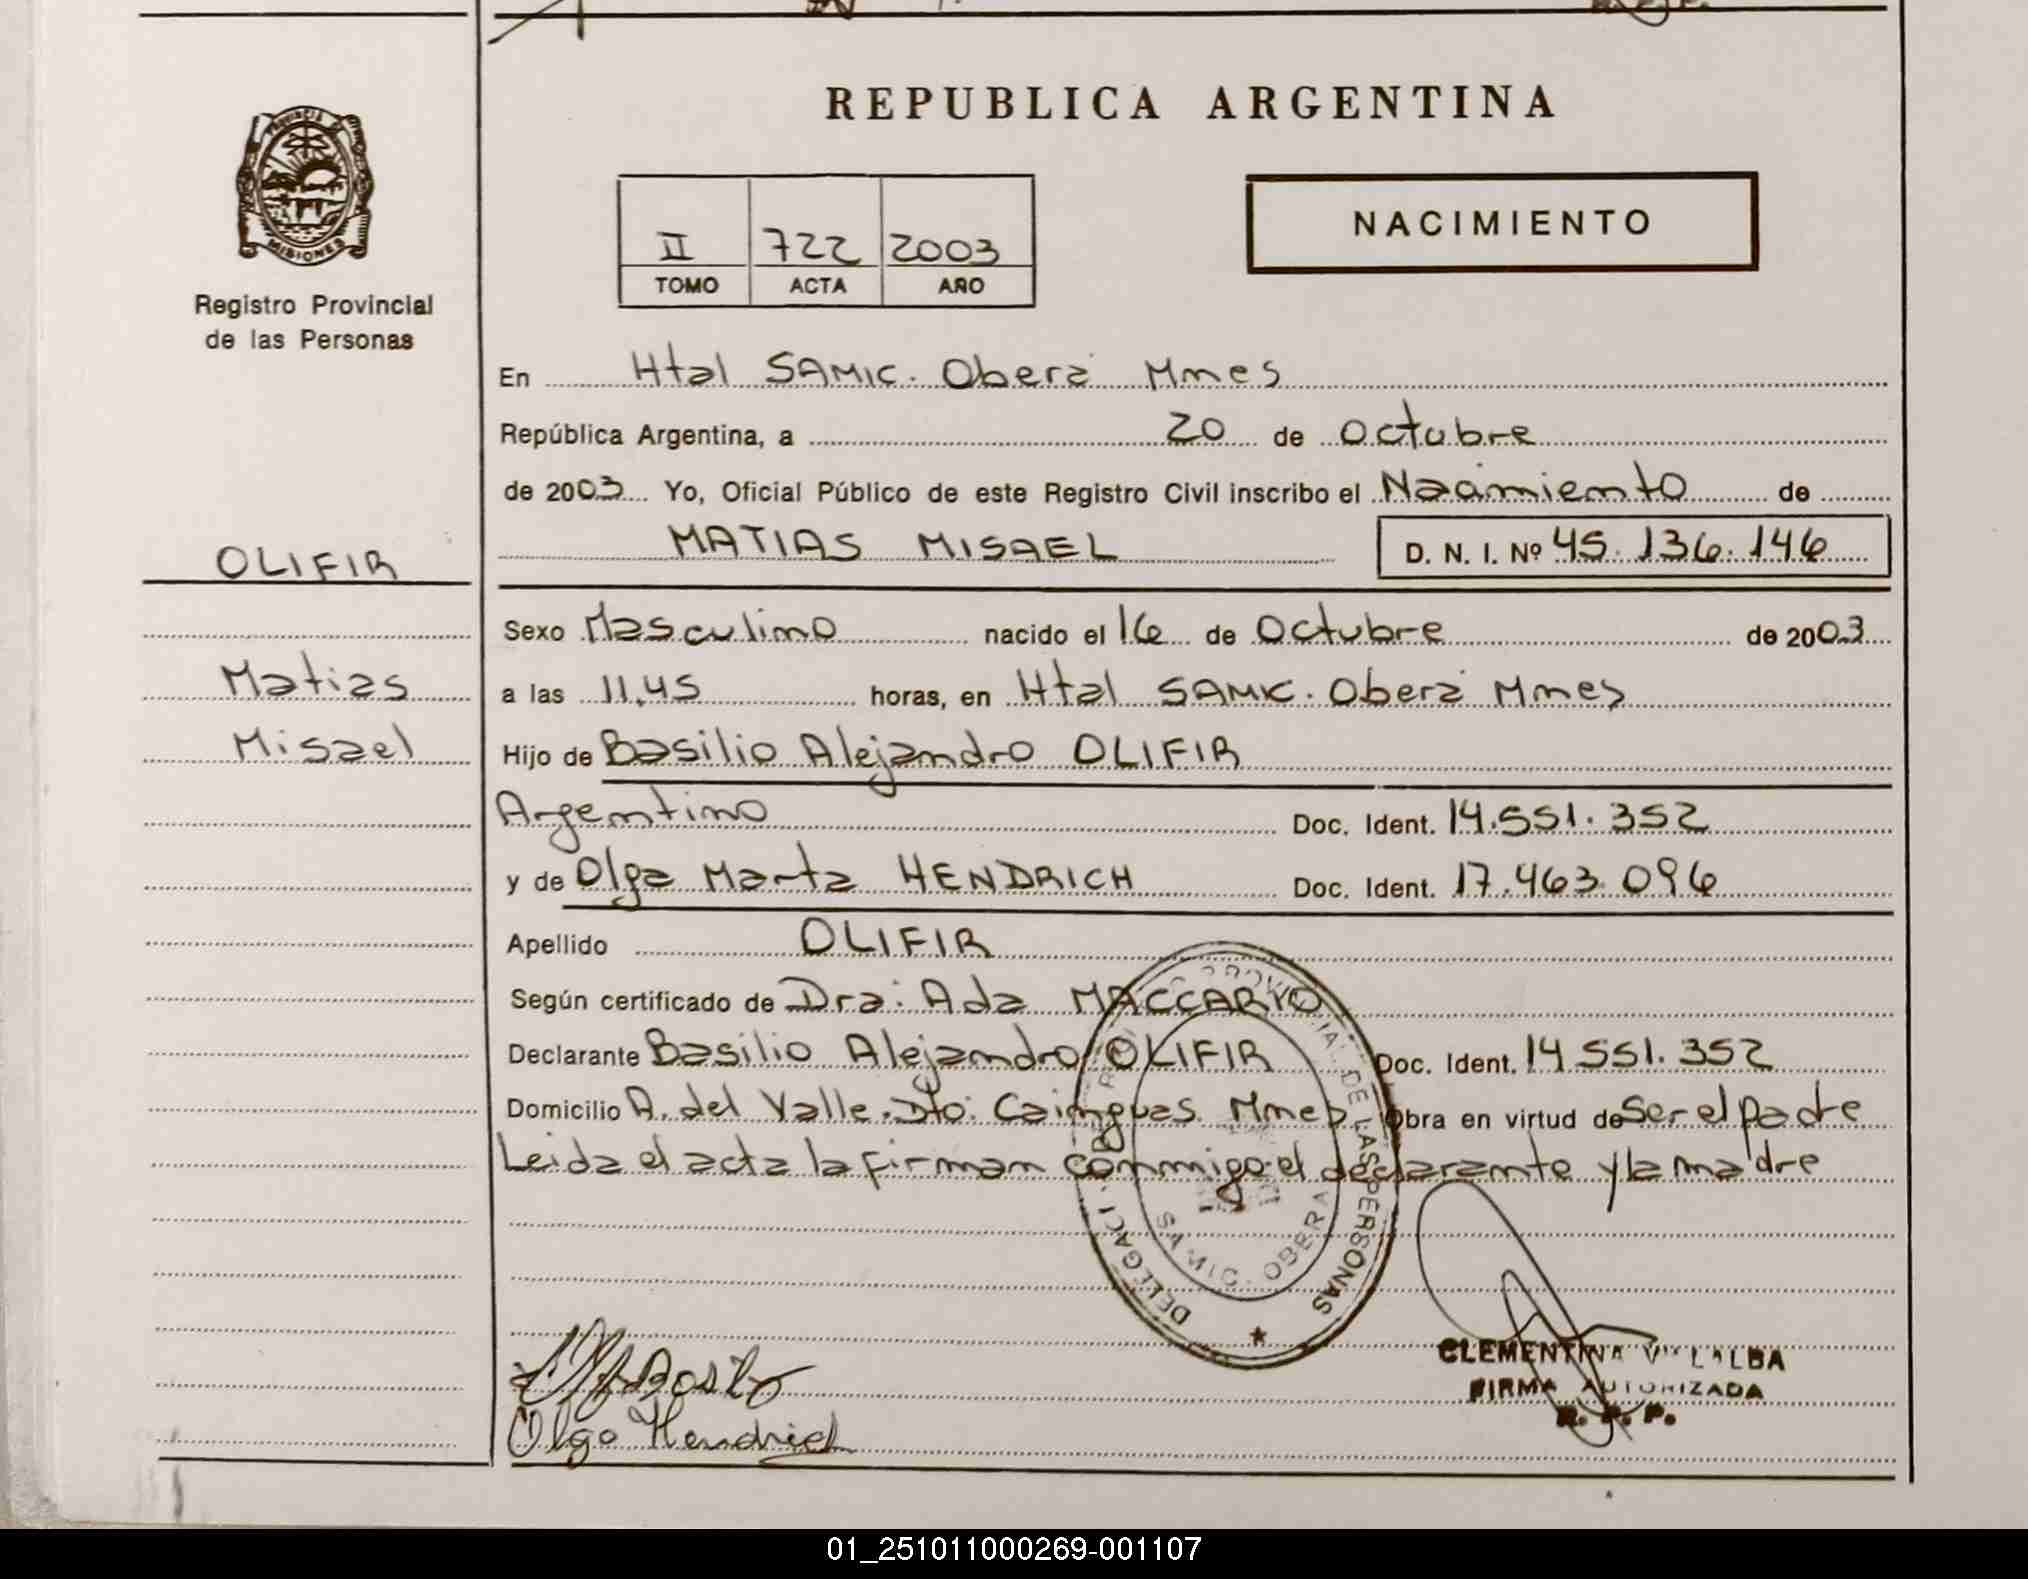 REPUBLICA ARGENTINA
PROVINCIA DE
MISIONES
Registro Provincial
de las Personas
OLIFIR
Matias
Misael
II 722 2003
TOMO ACTA AÑO
NACIMIENTO
En Htal SAMIC. Oberá Mnes
República Argentina, a 20 de Octubre
de 2003 Yo, Oficial Público de este Registro Civil inscribo el Nacimiento de
MATIAS MISAEL D. N. I. Nº 45.136.146
Sexo Masculino nacido el 16 de Octubre de 2003
a las 11,45 horas, en Htal SAMIC. Oberá Mnes
Hijo de Basilio Alejandro OLIFIR
Argentino Doc. Ident. 14.551.352
y de Olga Marta HENDRICH Doc. Ident. 17.463.096
Apellido OLIFIR
Según certificado de Dra: Ada MACCARYO
Declarante Basilio Alejandro OLIFIR Doc. Ident. 14.551.352
Domicilio A. del Valle. Dto. Cainguas Mnes Obra en virtud de Ser el padre
Leida el acta la firman conmigo el declarante y la madre
PROVINCIAL DE LAS PERSONAS
SAMIC. OBERA
Basilio
Olga Hendrich
CLEMENTINA VILLALBA
FIRMA AUTORIZADA
R. P. P.
01_251011000269-001107